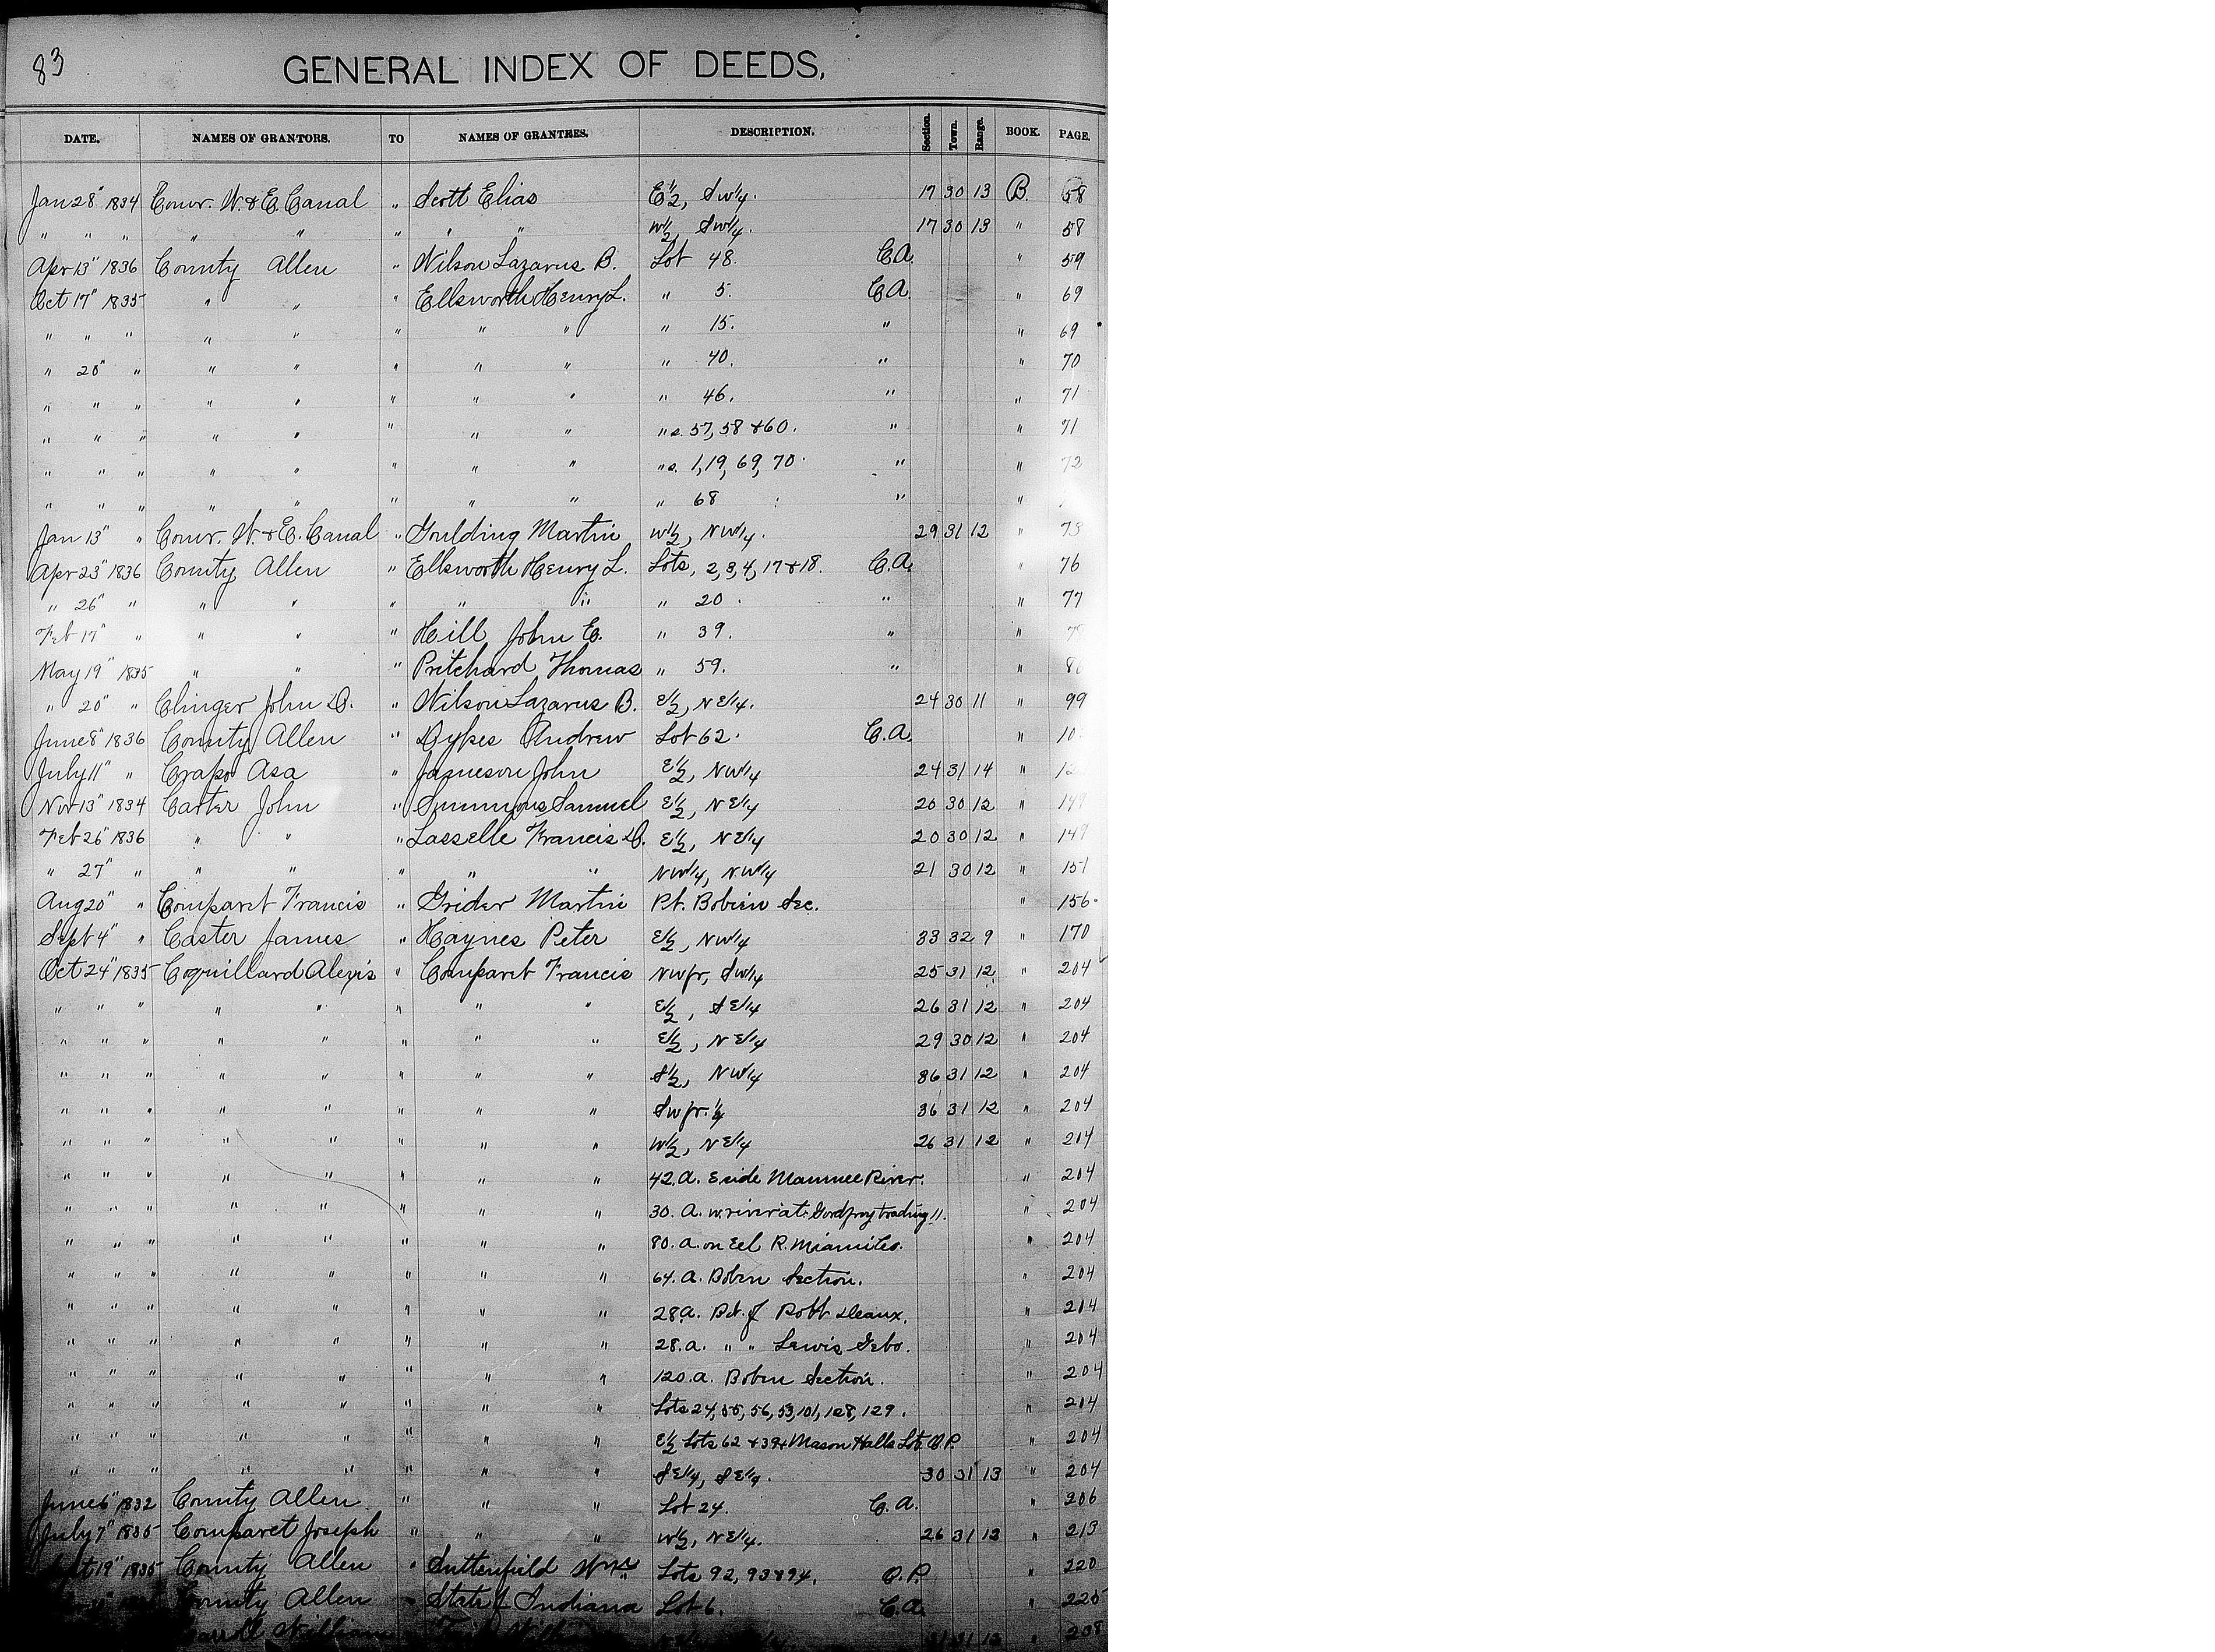 83
GENERAL INDEX OF DEEDS.
DATE. NAMES OF GRANTORS. TO NAMES OF GRANTEES. DESCRIPTION. Section. Town. Range. BOOK. PAGE.
Jan 28" 1834 Comr. W. & E. Canal " Scott Elias E 1/2, SW 1/4. 17 30 13 B. 58
" " " " " " " " W 1/2, SW 1/4. 17 30 13 " 58
Apr 13" 1836 County Allen " Wilson Lazarus B. Lot 48. C.A. " 59
Oct 17" 1835 " " " Ellsworth Henry L. " 5. C.A. " 69
" " " " " " " " " 15. " " 69
" 20" " " " " " " " 40. " " 70
" " " " " " " " " 46. " " 71
" " " " " " " " " s. 57, 58 & 60. " " 71
" " " " " " " " " s. 1, 19, 69, 70. " " 72
" " " " " " " " " 68 " "
Jan 13" " Comr. W. & E. Canal " Goulding Martin W 1/2, NW 1/4. 29 31 12 " 73
Apr 23" 1836 County Allen " Ellsworth Henry L. Lots, 2, 3, 4, 17 & 18. C.A. " 76
" 26" " " " " " " " 20. " " 77
Feb 17" " " " " Hill John E. " 39. " "
May 19" 1835 " " " Pritchard Thomas " 59. " "
" 20" " Clinger John D. " Wilson Lazarus B. E 1/2, NE 1/4. 24 30 11 " 99
June 8" 1836 County Allen " Dykes Andrew Lot 62. C.A. "
July 11" " Crapo Asa " Jameson John E 1/2, NW 1/4 24 31 14 "
Nov 13" 1834 Carter John " Simmons Samuel E 1/2, NE 1/4 20 30 12 " 149
Feb 26" 1836 " " " Lasselle Francis D. E 1/2, NE 1/4 20 30 12 " 149
" 27" " " " " " " NW 1/4, NW 1/4 21 30 12 " 151
Aug 20" " Comparet Francis " Grider Martin Pt. Bobien Sec. " 156
Sept 4" " Caster James " Haynes Peter E 1/2, NW 1/4 33 32 9 " 170
Oct 24" 1835 Coquillard Alexis " Comparet Francis NW fr, SW 1/4 25 31 12 " 204
" " " " " " " " E 1/2, SE 1/4 26 31 12 " 204
" " " " " " " " E 1/2, NE 1/4 29 30 12 " 204
" " " " " " " " S 1/2, NW 1/4 36 31 12 " 204
" " " " " " " " SW fr. 1/4 36 31 12 " 204
" " " " " " " " W 1/2, NE 1/4 26 31 12 " 204
" " " " " " " " 42. A. E side Maumee River. " 204
" " " " " " " " 30. A. w. river at Godfroy trading " 204
" " " " " " " " 80. a. on Eel R. Miamites. " 204
" " " " " " " " 64. a. Boben Section. " 204
" " " " " " " " 28 a. of Robt Deaux. " 204
" " " " " " " " 28. a. " " Lewis Gebo. " 204
" " " " " " " " 120. a. Boben Section. " 204
" " " " " " " " Lots 24, 55, 56, 53, 101, 128, 129. " 204
" " " " " " " " E 1/2 Lots 62 & 39 & Mason Halls Lot O.P. " 204
" " " " " " " " SE 1/4, SE 1/4. 30 31 13 " 204
June 6" 1832 County Allen " " " Lot 24. C.A. " 206
July 7" 1835 Comparet Joseph " " " W 1/2, NE 1/4. 26 31 12 " 213
19" 1835 County Allen " Suttenfield Wm Lots 92, 93 & 94. O.P. " 220
County Allen " State of Indiana Lot 6. C.A. " 225
William " 238